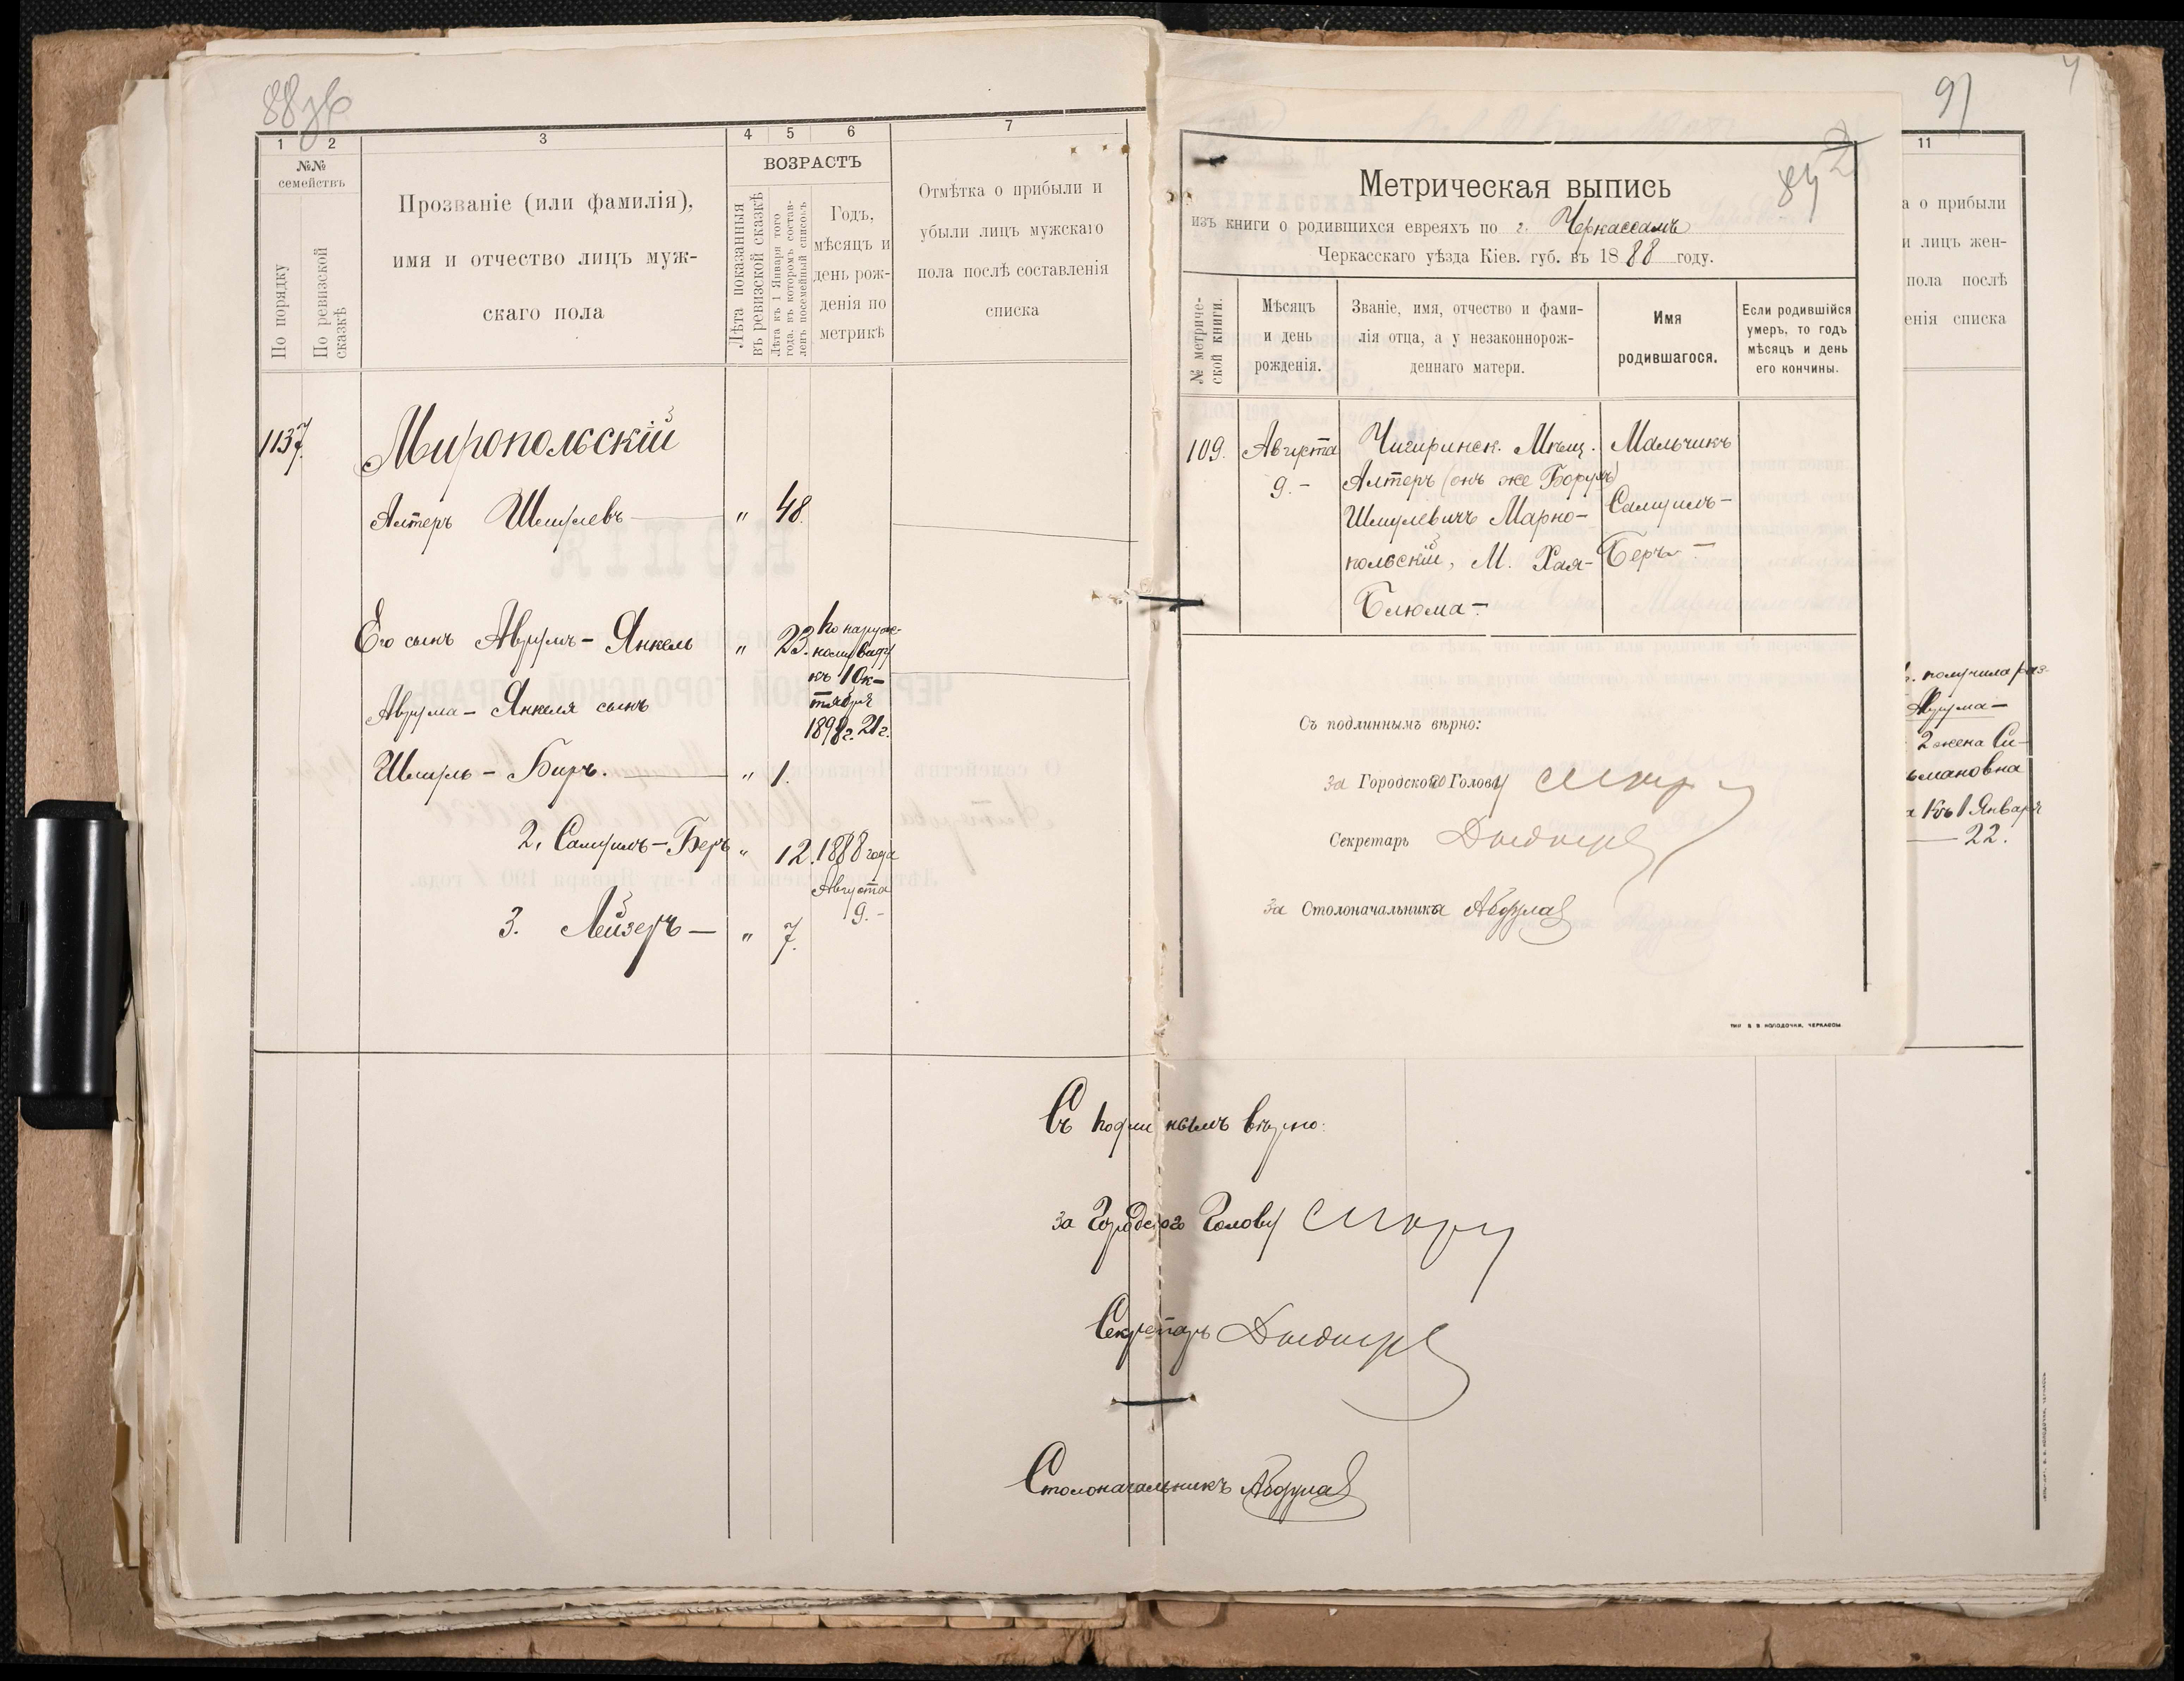 88зв
1 2 3 4 5 6 7
№№ семействъ
По порядку
По ревизской сказкѣ
Прозваніе (или фамилія),
имя и отчество лицъ муж-
скаго пола
ВОЗРАСТЪ
Лѣта показанныя
въ ревизской сказкѣ
Лѣта къ 1 Января того
года, въ которомъ состав-
ленъ посемейный списокъ
Годъ,
мѣсяцъ и
день рож-
денія по
метрикѣ
Отмѣтка о прибыли и
убыли лицъ мужскаго
пола послѣ составленія
списка
1137.
Миропольскій
Алтеръ Шмулевъ " 48.
Его сынъ Аврумъ-Янкель " 23.
По наруж-
ному виду
къ 1 Ок-
тября
1898 г. 21 г.
Аврума-Янкеля сынъ
Шмуль-Биръ. " 1.
2. Самуилъ-Беръ " 12. 1888 года
Августа
9.-
3. Лейзеръ " 7.
91
84
2
Метрическая выпись
изъ книги о родившихся евреяхъ по г. Черкассамъ
Черкасскаго уѣзда Кіев. губ. въ 1888 году.
№ метриче-
ской книги.
Мѣсяцъ
и день
рожденія.
Званіе, имя, отчество и фами-
лія отца, а у незаконнорож-
деннаго матери.
Имя
родившагося.
Если родившійся
умеръ, то годъ
мѣсяцъ и день
его кончины.
109.
Августа
9.-
Чигиринск. Мѣщ.
Алтеръ (онъ же Борухъ)
Шмулевичъ Марно-
польскій, М. Хая-
Блюма-
Мальчикъ
Самуилъ-
Беръ-
Съ подлиннымъ вѣрно:
За Городского Голову
Секретарь
За Столоначальника
ТИП В В КОЛОДОЧКИ, ЧЕРКАССЫ
11
а о прибыли
и лицъ жен-
пола послѣ
енія списка
получила раз-
Аврума-
2 жена Си-
ьмановна
а Къ 1 Января
22.
Съ подлиннымъ вѣрно:
За Городского Голову
Секретарь
Столоначальникъ